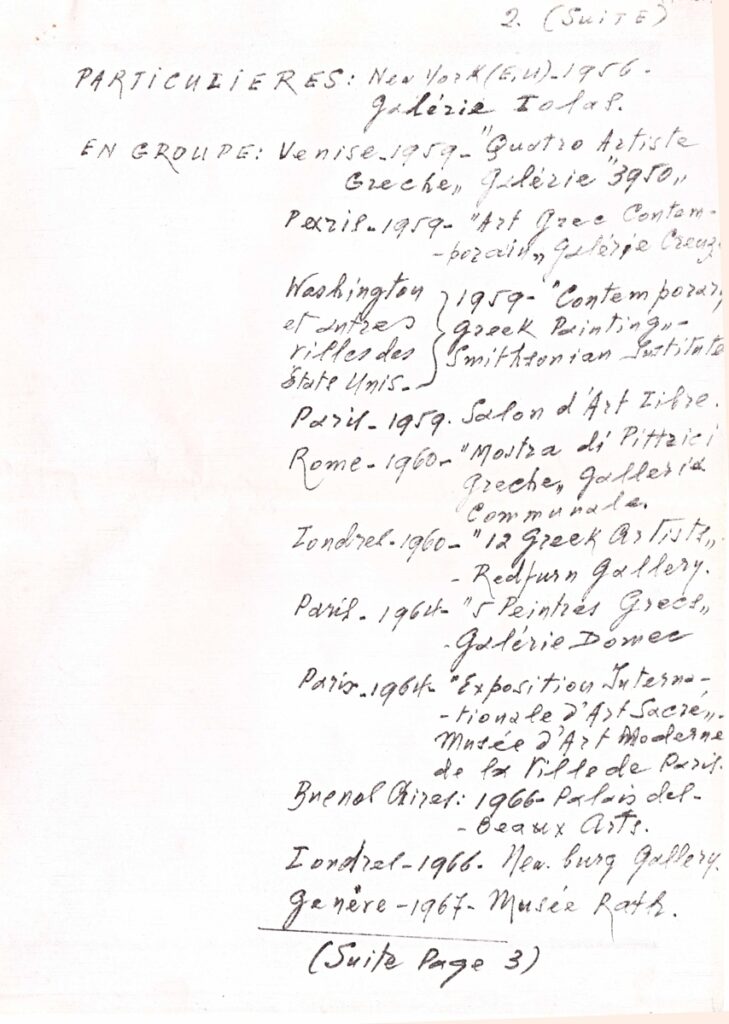 2. (SUITE)
PARTICULIERES: New York (E,U) - 1956 -
Galérie Iolas.
EN GROUPE: Venise - 1959 - "Quatro Artiste
Greche„ Galérie "3950„
Paris - 1959 - "Art Grec Contem-
-porain„ Galérie Creuz
Washington } 1959 - "Contemporary
et autres Greek Painting„ -
villes des Smithsonian Institute
État Unis. -
Paris - 1959. Salon d'Art Libre.
Rome - 1960 - "Mostra di Pittrici
Greche„ Galleria
Communale.
Londres - 1960 - "12 Greek Artists„
- Redfurn Gallery.
Paris - 1964 - "5 Peintres Grecs„
- Galérie Domec
Paris - 1964 - "Exposition Interna-
-tionale d'Art Sacré„ -
Musée d'Art Moderne
de la Ville de Paris.
Buenos Aires: 1966 - Palais des -
- Beaux Arts.
Londres - 1966 - New. burg Gallery.
Genève - 1967 - Musée Rath.
(Suite Page 3)